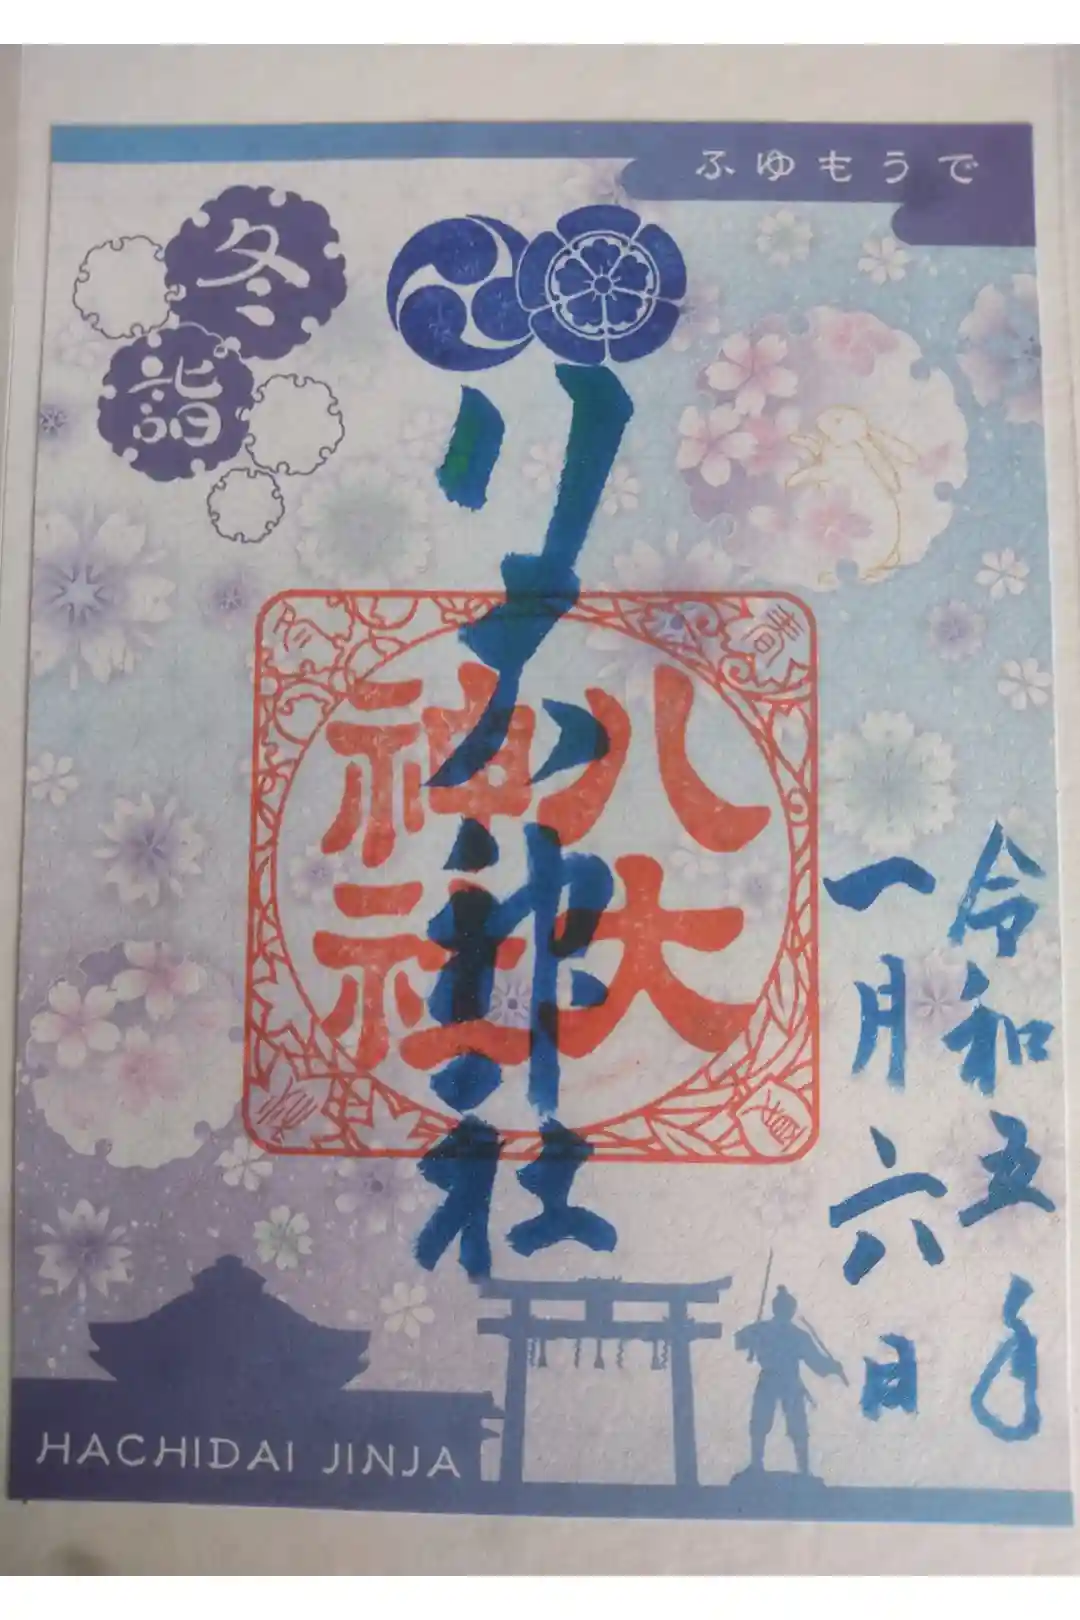 ふゆもうで
冬詣
八大神社
八大神社
令和五年
一月六日
HACHIDAI JINJA